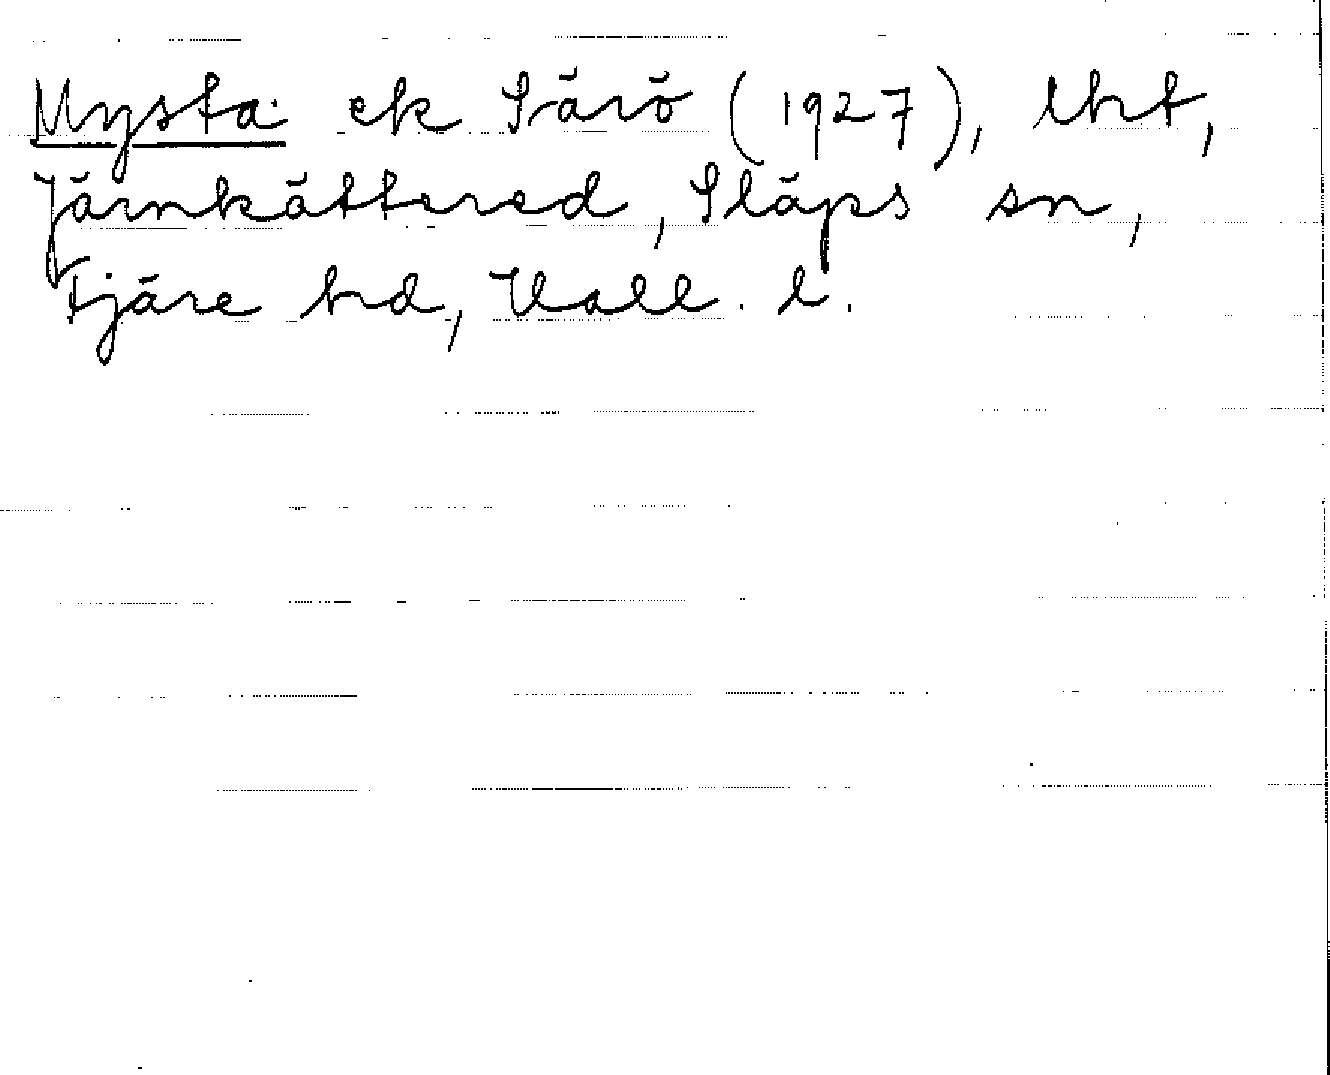 Mysta ek Särö (1927), lht,
Järnkättered, Släps sn,
Fjäre hd, Hall. l.